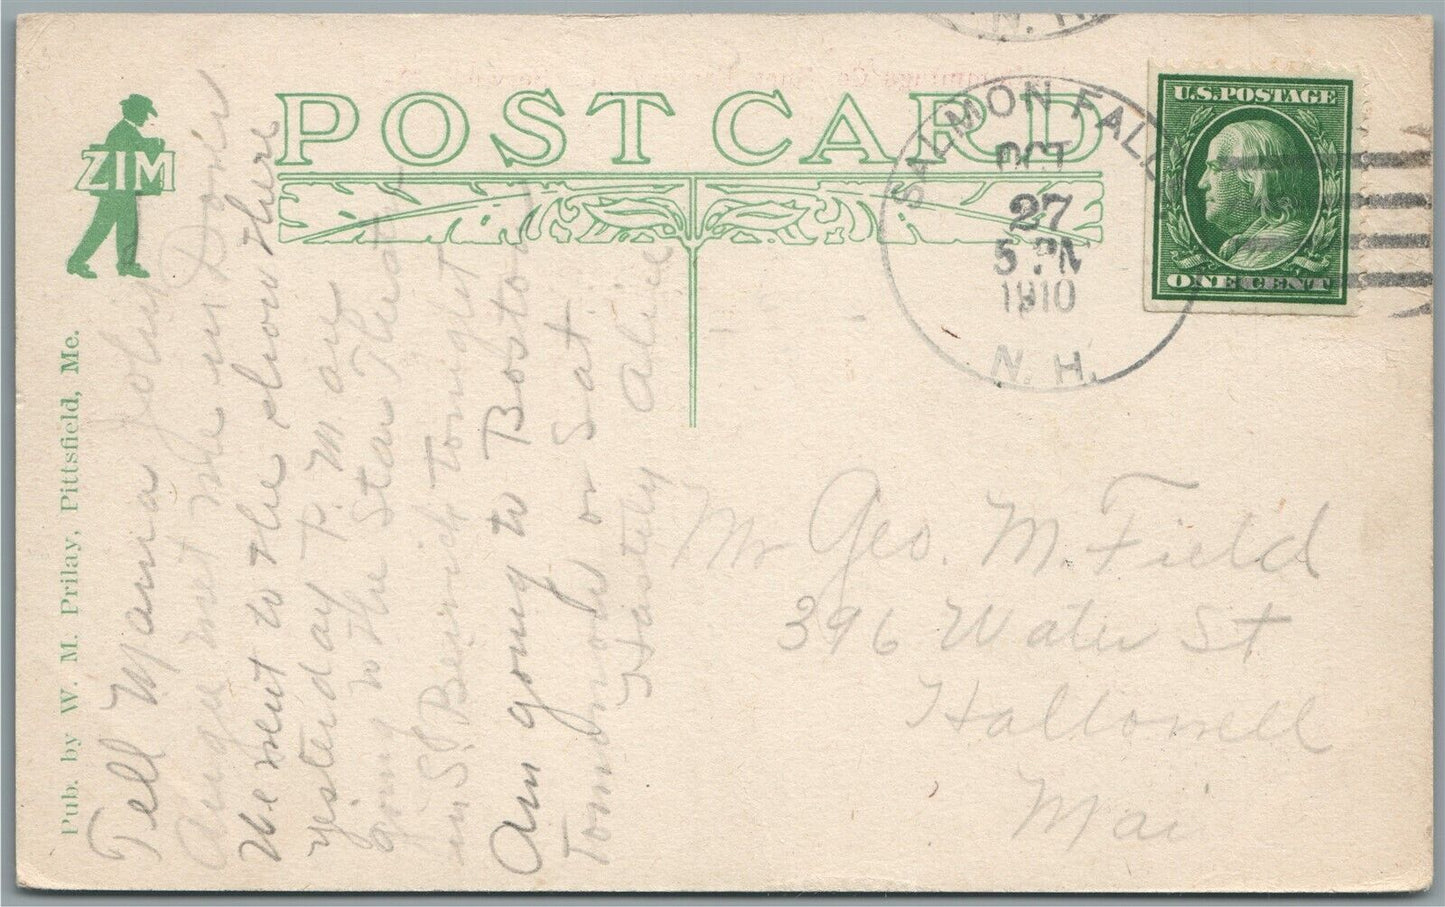 POST CARD
ZIM
Pub. by W. M. Prilay, Pittsfield, Me.
SALMON FALLS
OCT
27
5 PM
1910
N. H.
N. H.
U.S. POSTAGE
ONE CENT
Tell Mama John
met me in Dover
We went to the show there
yesterday P.M are
going to the Star Theatre
in S. Berwick tonight
Am going to Boston
Tomorrow or Sat
Hastely Alice
Mr Geo. M. Field
396 Water St
Hallowell
Mai